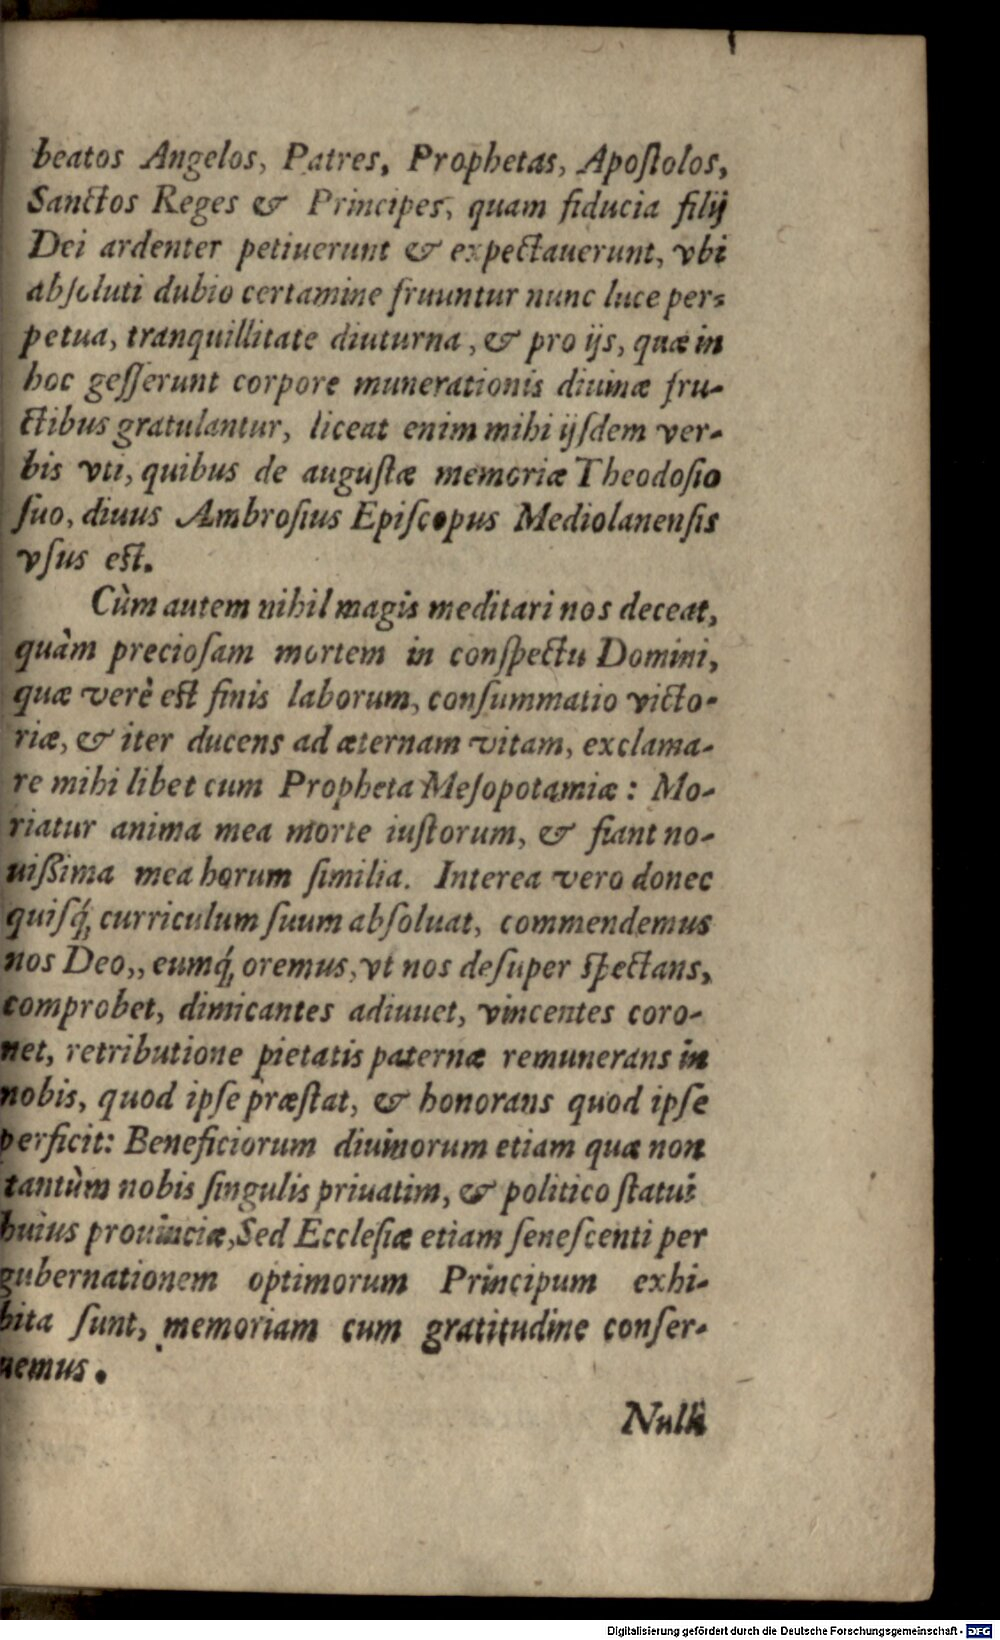 beatos Angelos, Patres, Prophetas, Apoſtolos,
Sanctos Reges & Principes, quam fiducia filij
Dei ardenter petiuerunt & expectauerunt, vbi
abſoluti dubio certamine fruuntur nunc luce per-
petua, tranquillitate diuturna, & pro ijs, quæ in
hoc geſſerunt corpore munerationis diuinæ fru-
ctibus gratulantur, liceat enim mihi ijſdem ver-
bis vti, quibus de auguſtæ memoriæ Theodoſio
ſuo, diuus Ambroſius Epiſcopus Mediolanenſis
vſus eſt.
Cùm autem nihil magis meditari nos deceat,
quàm precioſam mortem in conſpectu Domini,
quæ verè eſt finis laborum, conſummatio victo-
riæ, & iter ducens ad æternam vitam, exclama-
re mihi libet cum Propheta Meſopotamiæ: Mo-
riatur anima mea morte iuſtorum, & fiant no-
uißima mea horum ſimilia. Interea vero donec
quiſq́; curriculum ſuum abſoluat, commendemus
nos Deo,, eumq́; oremus, vt nos deſuper ſpectans,
comprobet, dimicantes adiuuet, vincentes coro-
net, retributione pietatis paternæ remunerans in
nobis, quod ipſe præſtat, & honorans quod ipſe
perficit: Beneficiorum diuinorum etiam quæ non
tantùm nobis ſingulis priuatim, & politico ſtatui
huius prouinciæ, Sed Eccleſiæ etiam ſeneſcenti per
gubernationem optimorum Principum exhi-
bita ſunt, memoriam cum gratitudine conſer-
uemus.
Nulli
Digitalisierung gefördert durch die Deutsche Forschungsgemeinschaft - DFG